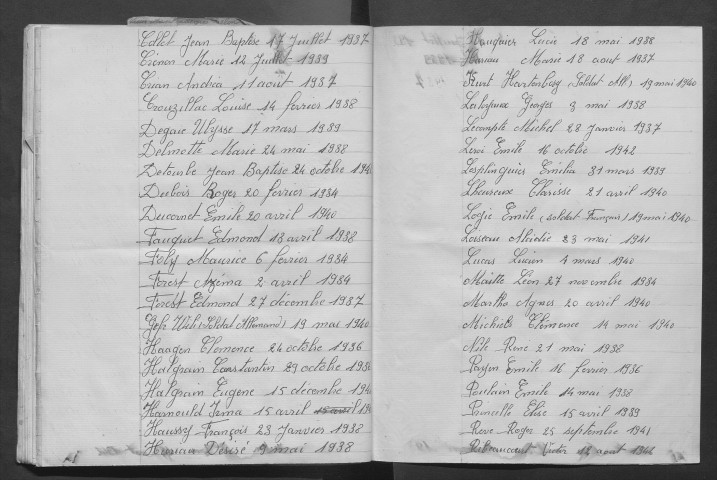 Collet Jean Baptise 17 Juillet 1937
Crinon Marie 12 Juillet 1939
Crian Andréa 11 aout 1937
Crouzillac Louise 14 fevrier 1938
Degaie Ulysse 17 mars 1939
Delmotte Marie 24 mai 1938
Detourbe Jean Baptise 24 octobre 1940
Dubois Roger 20 fevrier 1934
Ducornet Emile 20 avril 1940
Fauquet Edmond 13 avril 1938
Foly Maurice 6 fevrier 1934
Forest Azéma 2 avril 1934
Forest Edmond 27 décembre 1937
Willi (Soldat Allemand) 19 mai 1940
Haagen Clemence 24 octobre 1936
Halgrain Constantin 29 octobre
Halgrain Eugene 15 décembre
Harnould Irma 15 avril
Haussy François 23 Janvier 1938
Désiré 9 mai 1938
Lucie 18 mai 1938
Marie 18 aout 1937
Kurt Hartenberg (Soldat All) 19 mai 1940
Georges 3 mai 1938
Lecompte Michel 28 Janvier 1937
Leroi Emile 16 octobre 1942
Lesplinguier Emilia 31 mars 1939
Lheureux Clarisse 21 avril 1940
Logie Emile (soldat Français) 19 mai 1940
Loiseau 23 mai 1941
Lucas Lucien 4 mars 1940
Maitte Léon 27 novembre 1934
Martho Agnes 20 avril 1940
Michiels Clémence 14 mai 1940
René 21 mai 1938
Emile 16 fevrier 1936
Poulain Emile 14 mai 1938
Elise 15 avril 1939
Reve Roger 25 septembre 1941
Ribeaucourt Victor 12 aout